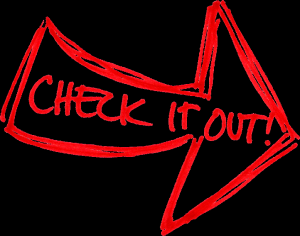 CHECK IT OUT!